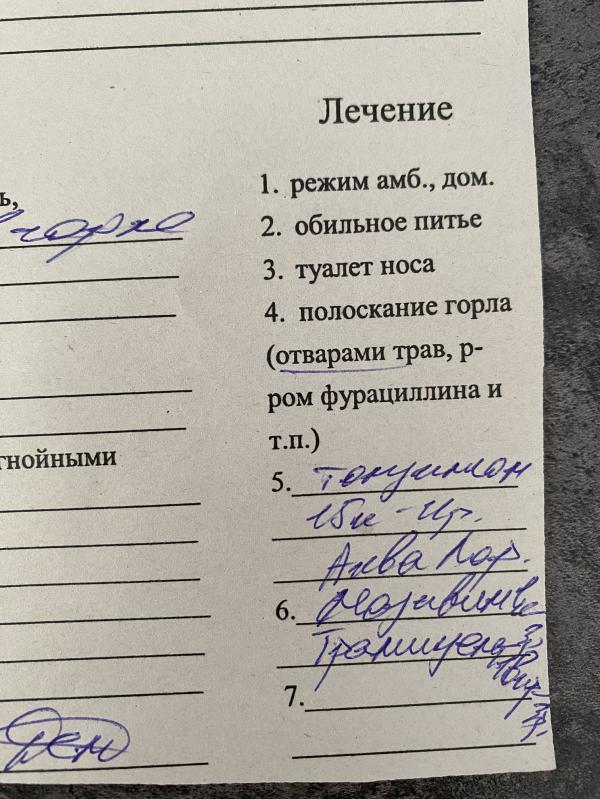 Лечение
ь,
1. режим амб., дом.
горло
2. обильное питье
3. туалет носа
4. полоскание горла
(отварами трав, р-
ром фурациллина и
т.п.)
гнойными
5. Тонзилгон
15к - 4р.
Аква Лор.
6.
7.